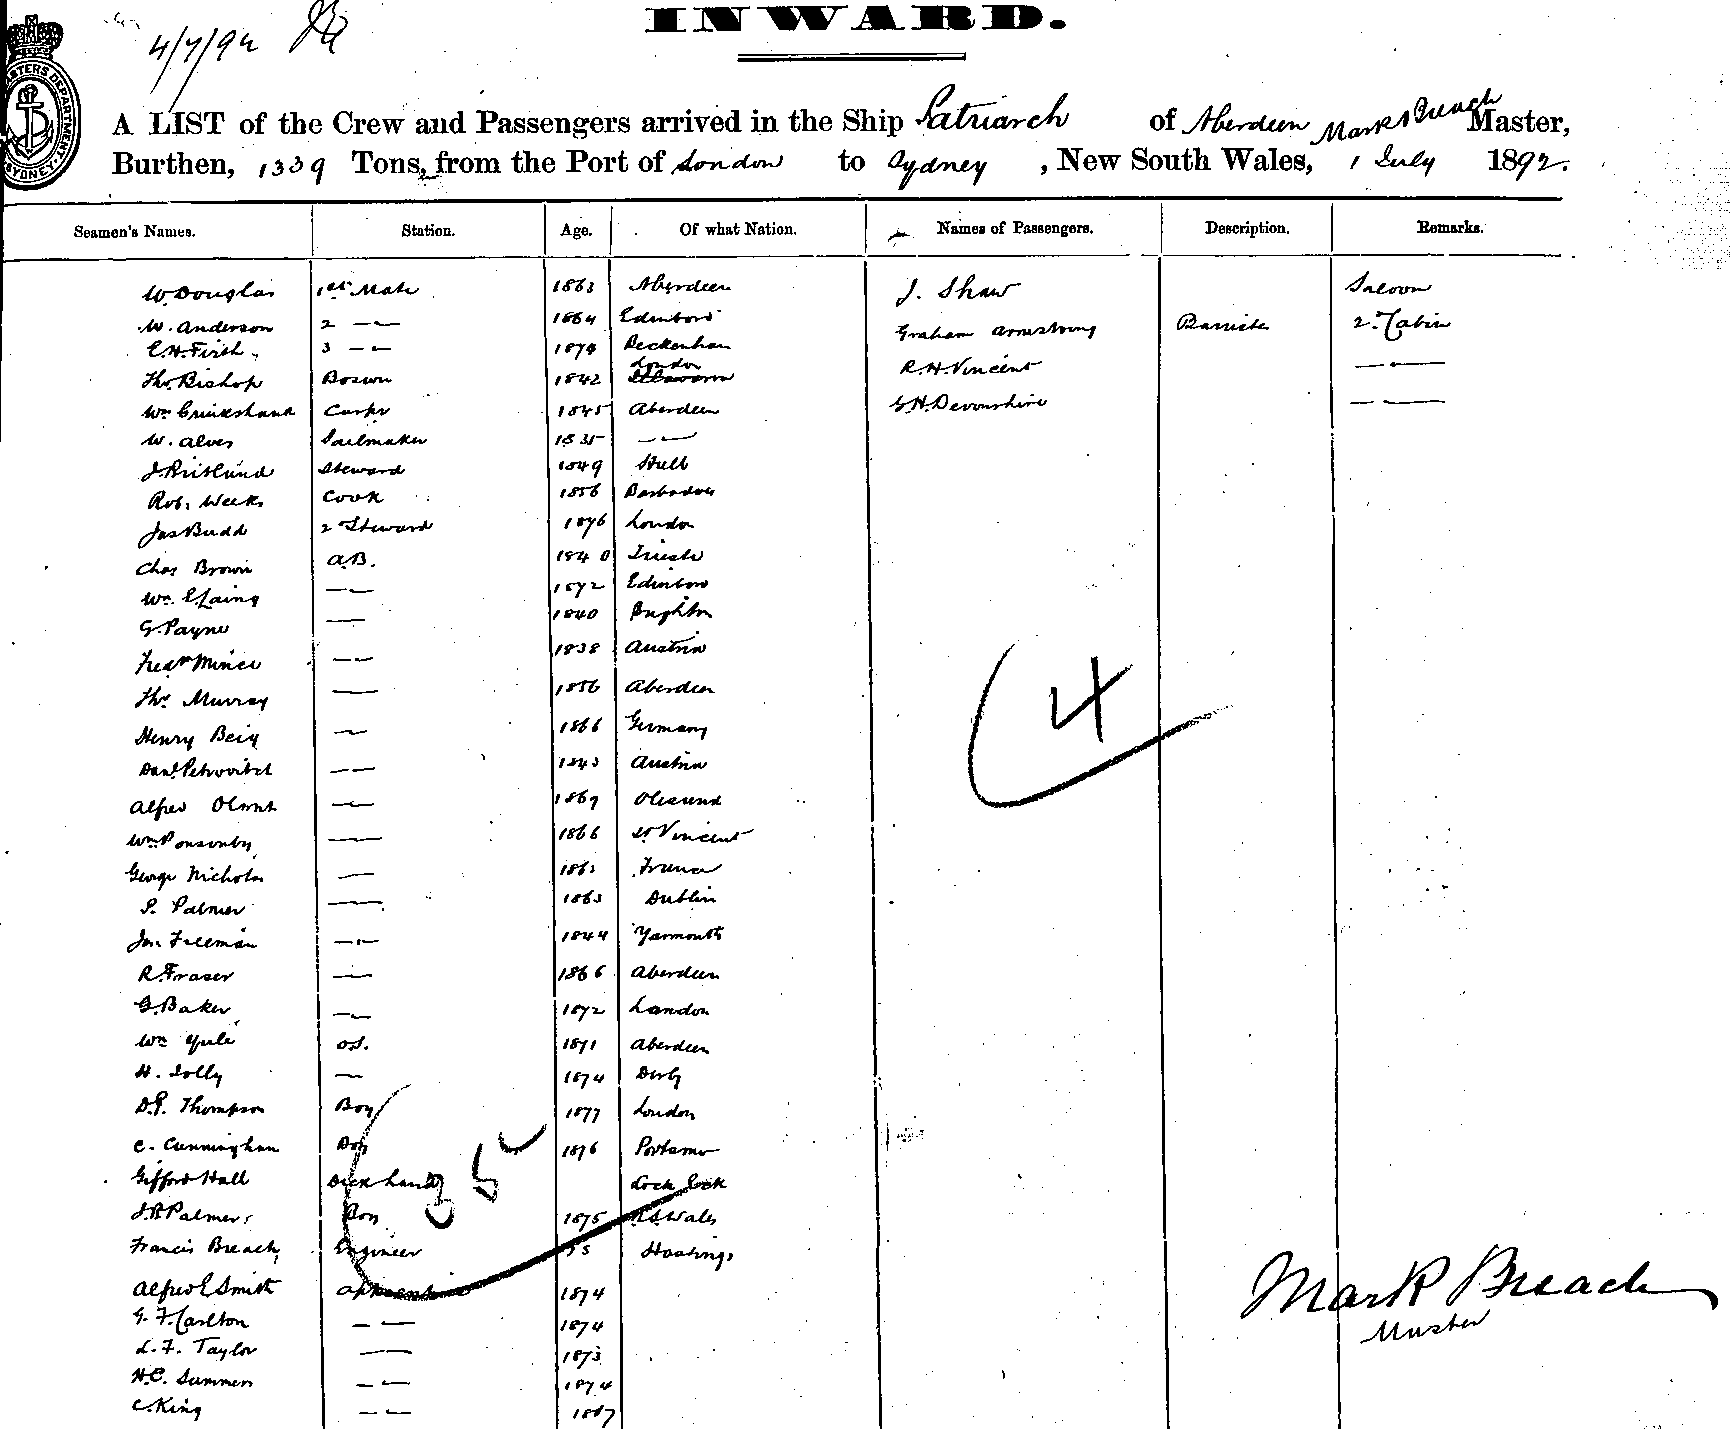 4/7/92
INWARD.
A LIST of the Crew and Passengers arrived in the Ship Patriarch of Aberdeen Mark Breach Master,
Burthen, 1339 Tons, from the Port of London to Sydney, New South Wales, 1 July 1892.
Seamen's Names. Station. Age. Of what Nation. Names of Passengers. Description. Remarks.
W. Douglas 1st Mate 1863 Aberdeen J. Shaw Saloon
W. Anderson 2 —"— 1864 Edinboro Graham Armstrong Barrister 2. Cabin
E.H. Firth 3 —"— 1874 Beckenham R.H. Vincent —"—
Thos Bishop Bosun 1842 London G.H. Devonshire —"—
Wm Cruickshank Carpr 1845 Aberdeen
W. Alves Sailmaker 1835 —"—
Steward 1849 Hull
Rob. Weeks Cook 1856 Barbadoes
Jas Budd 2 Steward 1876 London
Chas Brown A.B. 1840 Trieste
Wm E. Laing —"— 1872 Edinboro
G. Payne —"— 1840 Brighton
—"— 1838 Austria
Thos Murray —"— 1856 Aberdeen
Henry Beig —"— 1866 Germany
Danl Petrovitch —"— 1843 Austria
Alfred —"— 1869
Wm Ponsonby —"— 1866 St Vincent
George Nicholas —"— 1863 France
P. Palmer —"— 1863 Dublin
Jas. Freeman —"— 1844 Yarmouth
R. Fraser —"— 1866 Aberdeen
G. Baker —"— 1872 London
Wm Yule O.S. 1871 Aberdeen
H. Jolly —"— 1874 Derby
D.P. Thompson Boy 1877 London
C. Cunningham Boy 1876 Portsmo
Gifford Hall Deck hand
J.R. Palmer Boy 1875 N.S. Wales
Francis Breach Engineer 55 Hastings
Alfred E Smith Apprentice 1874
G. F. Carlton —"— 1874
L. F. Taylor —"— 1873
H.C. Summers —"— 1874
C. King —"— 1867
4
35
Mark Breach
Master